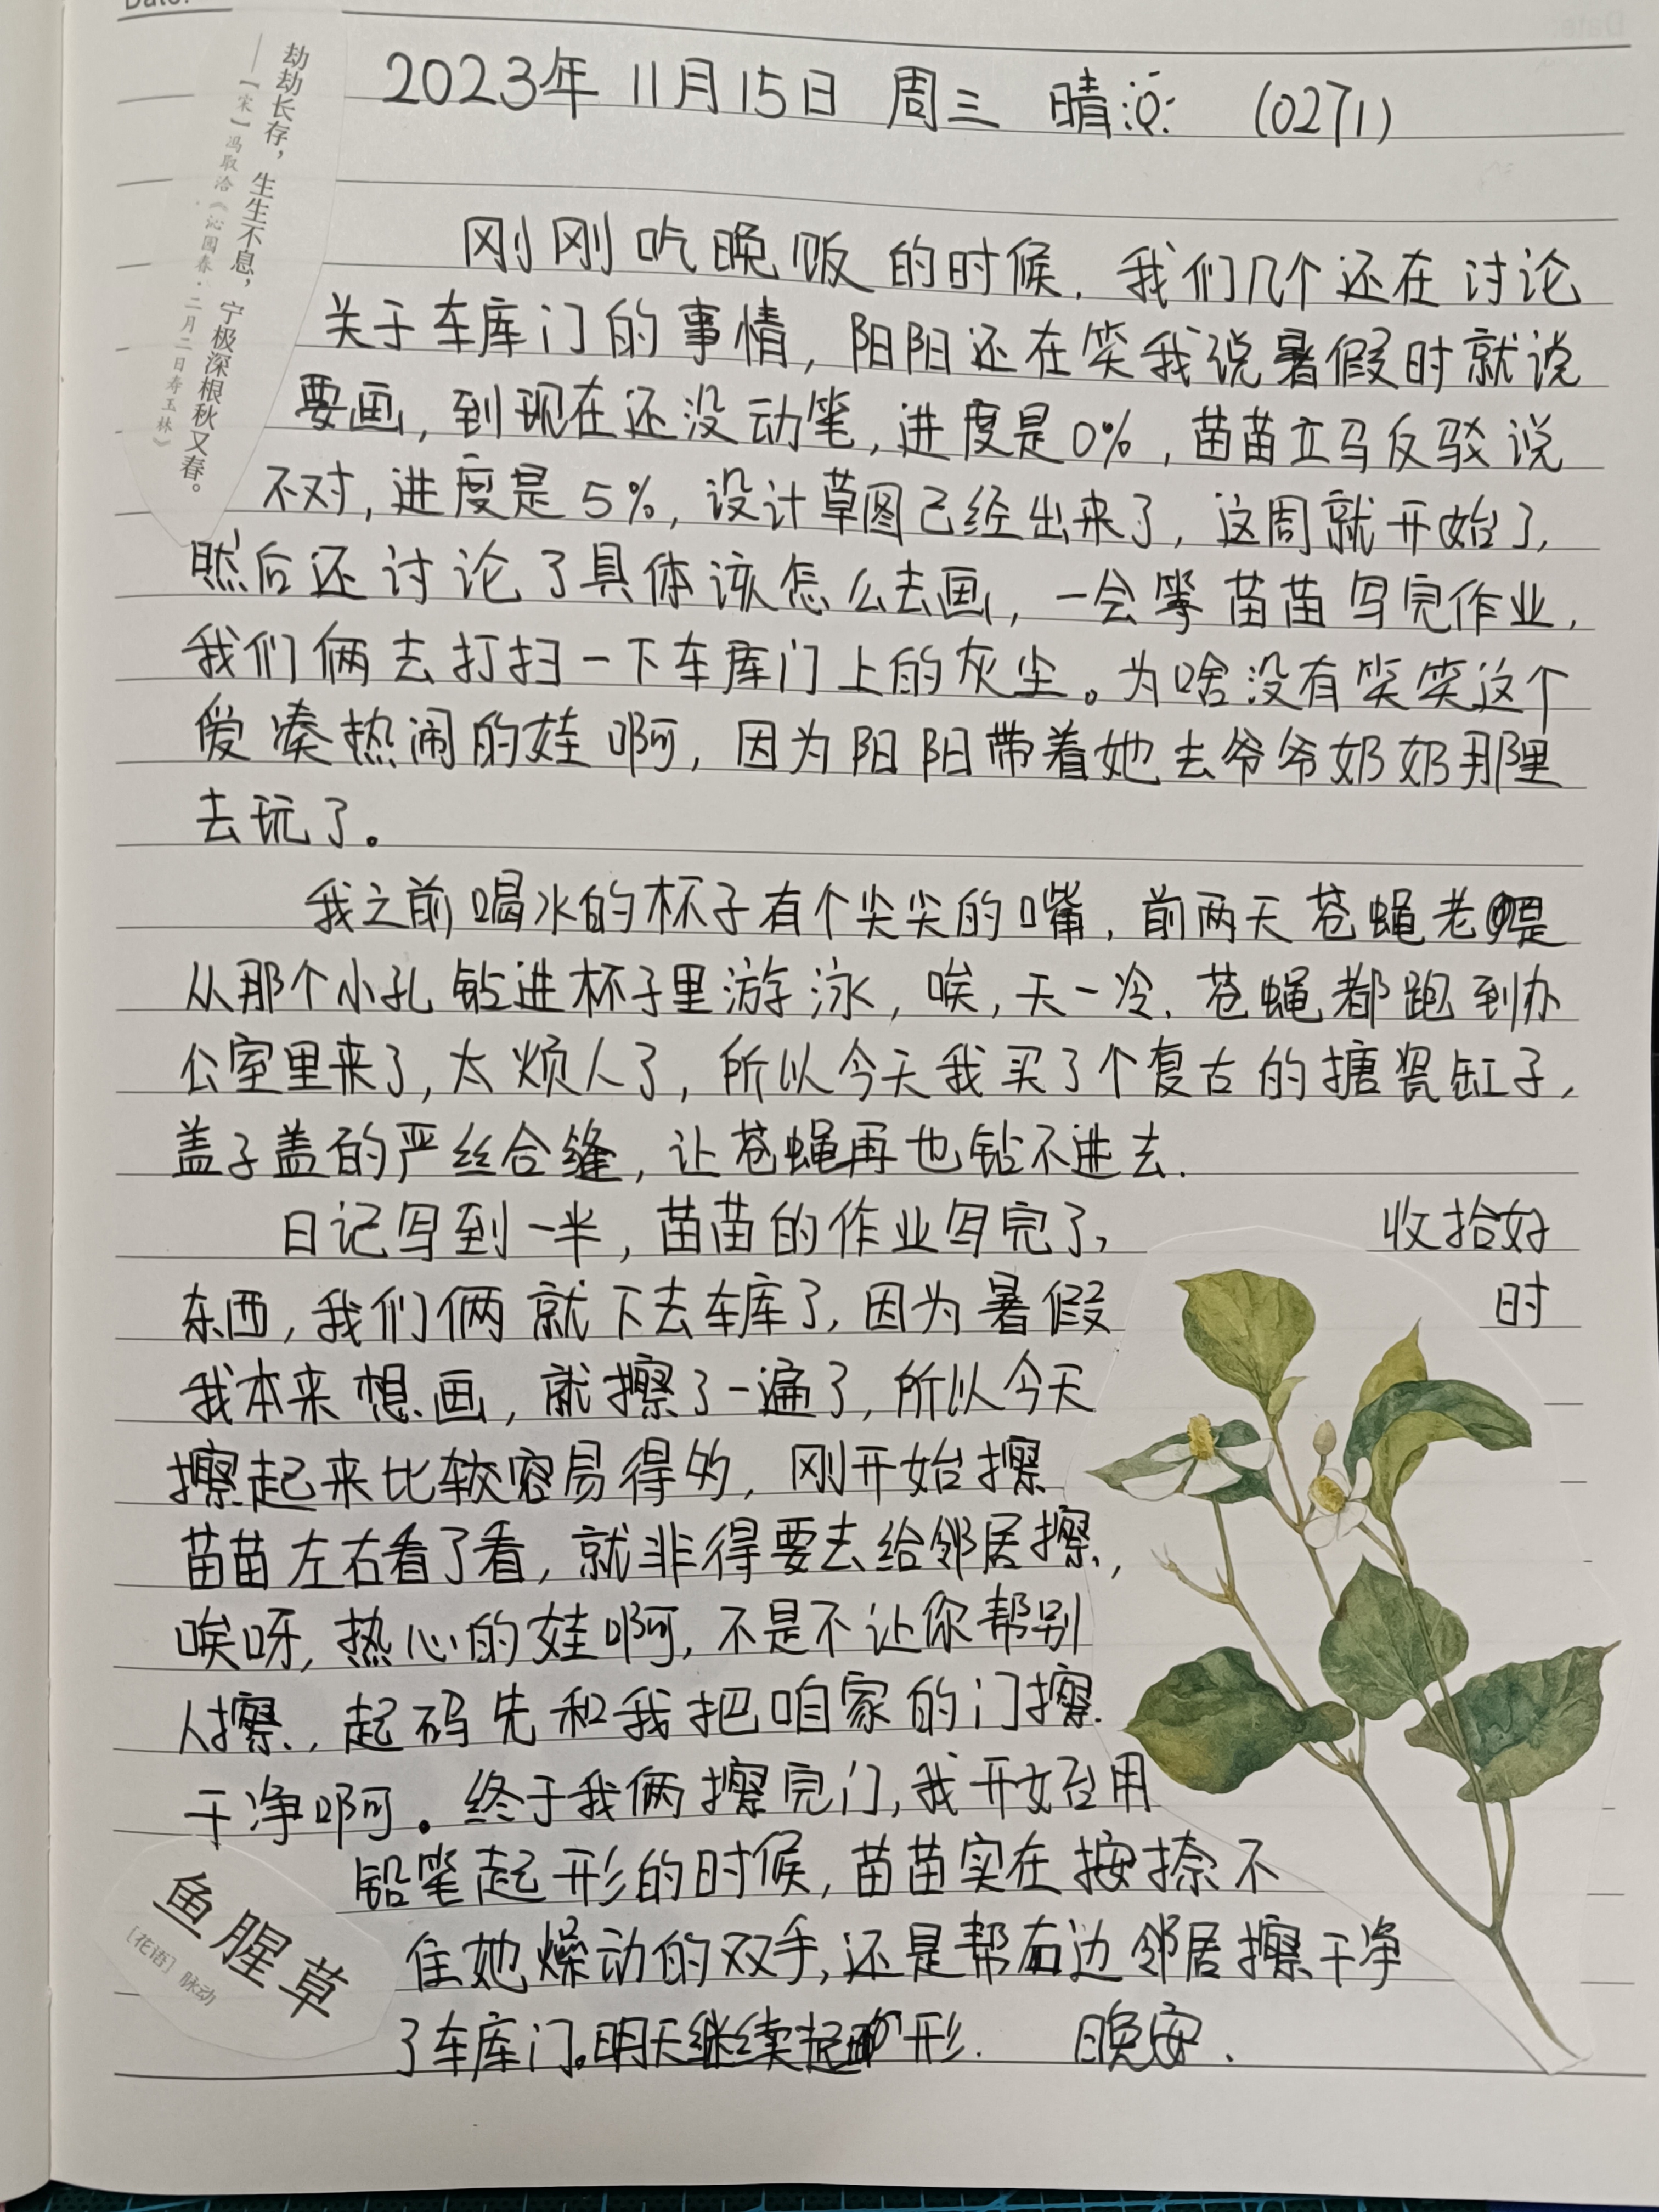 劫劫长存，生生不息，宁极深根秋又春。
——【宋】冯取洽《沁园春·二月二日寿玉林》
2023年 11月15日 周三 晴 (0271)
刚刚吃晚饭的时候，我们几个还在讨论
关于车库门的事情，阳阳还在笑我说暑假时就说
要画，到现在还没动笔，进度是0%，苗苗立马反驳说
不对，进度是5%，设计草图已经出来了，这周就开始了，
然后还讨论了具体该怎么去画，一会等苗苗写完作业，
我们俩去打扫一下车库门上的灰尘。为啥没有笑笑这个
爱凑热闹的娃啊，因为阳阳带着她去爷爷奶奶那里
去玩了。
我之前喝水的杯子有个尖尖的嘴，前两天苍蝇老是
从那个小孔钻进杯子里游泳，唉，天一冷，苍蝇都跑到办
公室里来了，太烦人了，所以今天我买了个复古的搪瓷缸子，
盖子盖的严丝合缝，让苍蝇再也钻不进去.
日记写到一半，苗苗的作业写完了，收拾好
东西，我们俩就下去车库了，因为暑假时
我本来想画，就擦了一遍了，所以今天
擦起来比较容易得多，刚开始擦
苗苗左右看了看，就非得要去给邻居擦，
唉呀，热心的娃啊，不是不让你帮别
人擦，起码先和我把咱家的门擦
干净啊。终于我俩擦完门，我开始用
铅笔起形的时候，苗苗实在按捺不
住她燥动的双手，还是帮右边邻居擦干净
了车库门。明天继续起形. 晚安.
鱼腥草
［花语］脉动
Date: